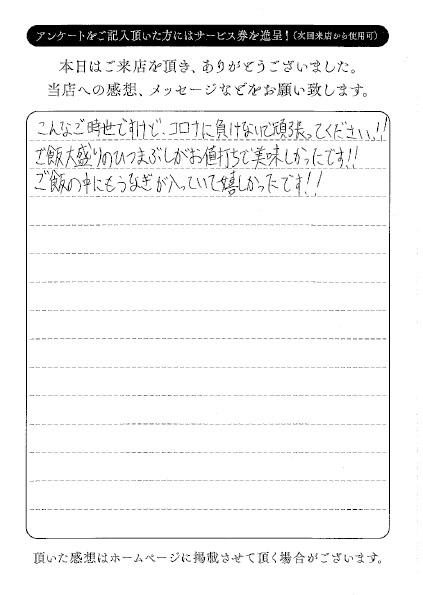 アンケートをご記入頂いた方にはサービス券を進呈！(次回来店から使用可)
本日はご来店を頂き、ありがとうございました。
当店への感想、メッセージなどをお願い致します。
こんなご時世ですけど、コロナに負けないで頑張ってください!!
ご飯大盛りのひつまぶしがお値打ちで美味しかったです!!
ご飯の中にもうなぎが入っていて嬉しかったです!!
頂いた感想はホームページに掲載させて頂く場合がございます。